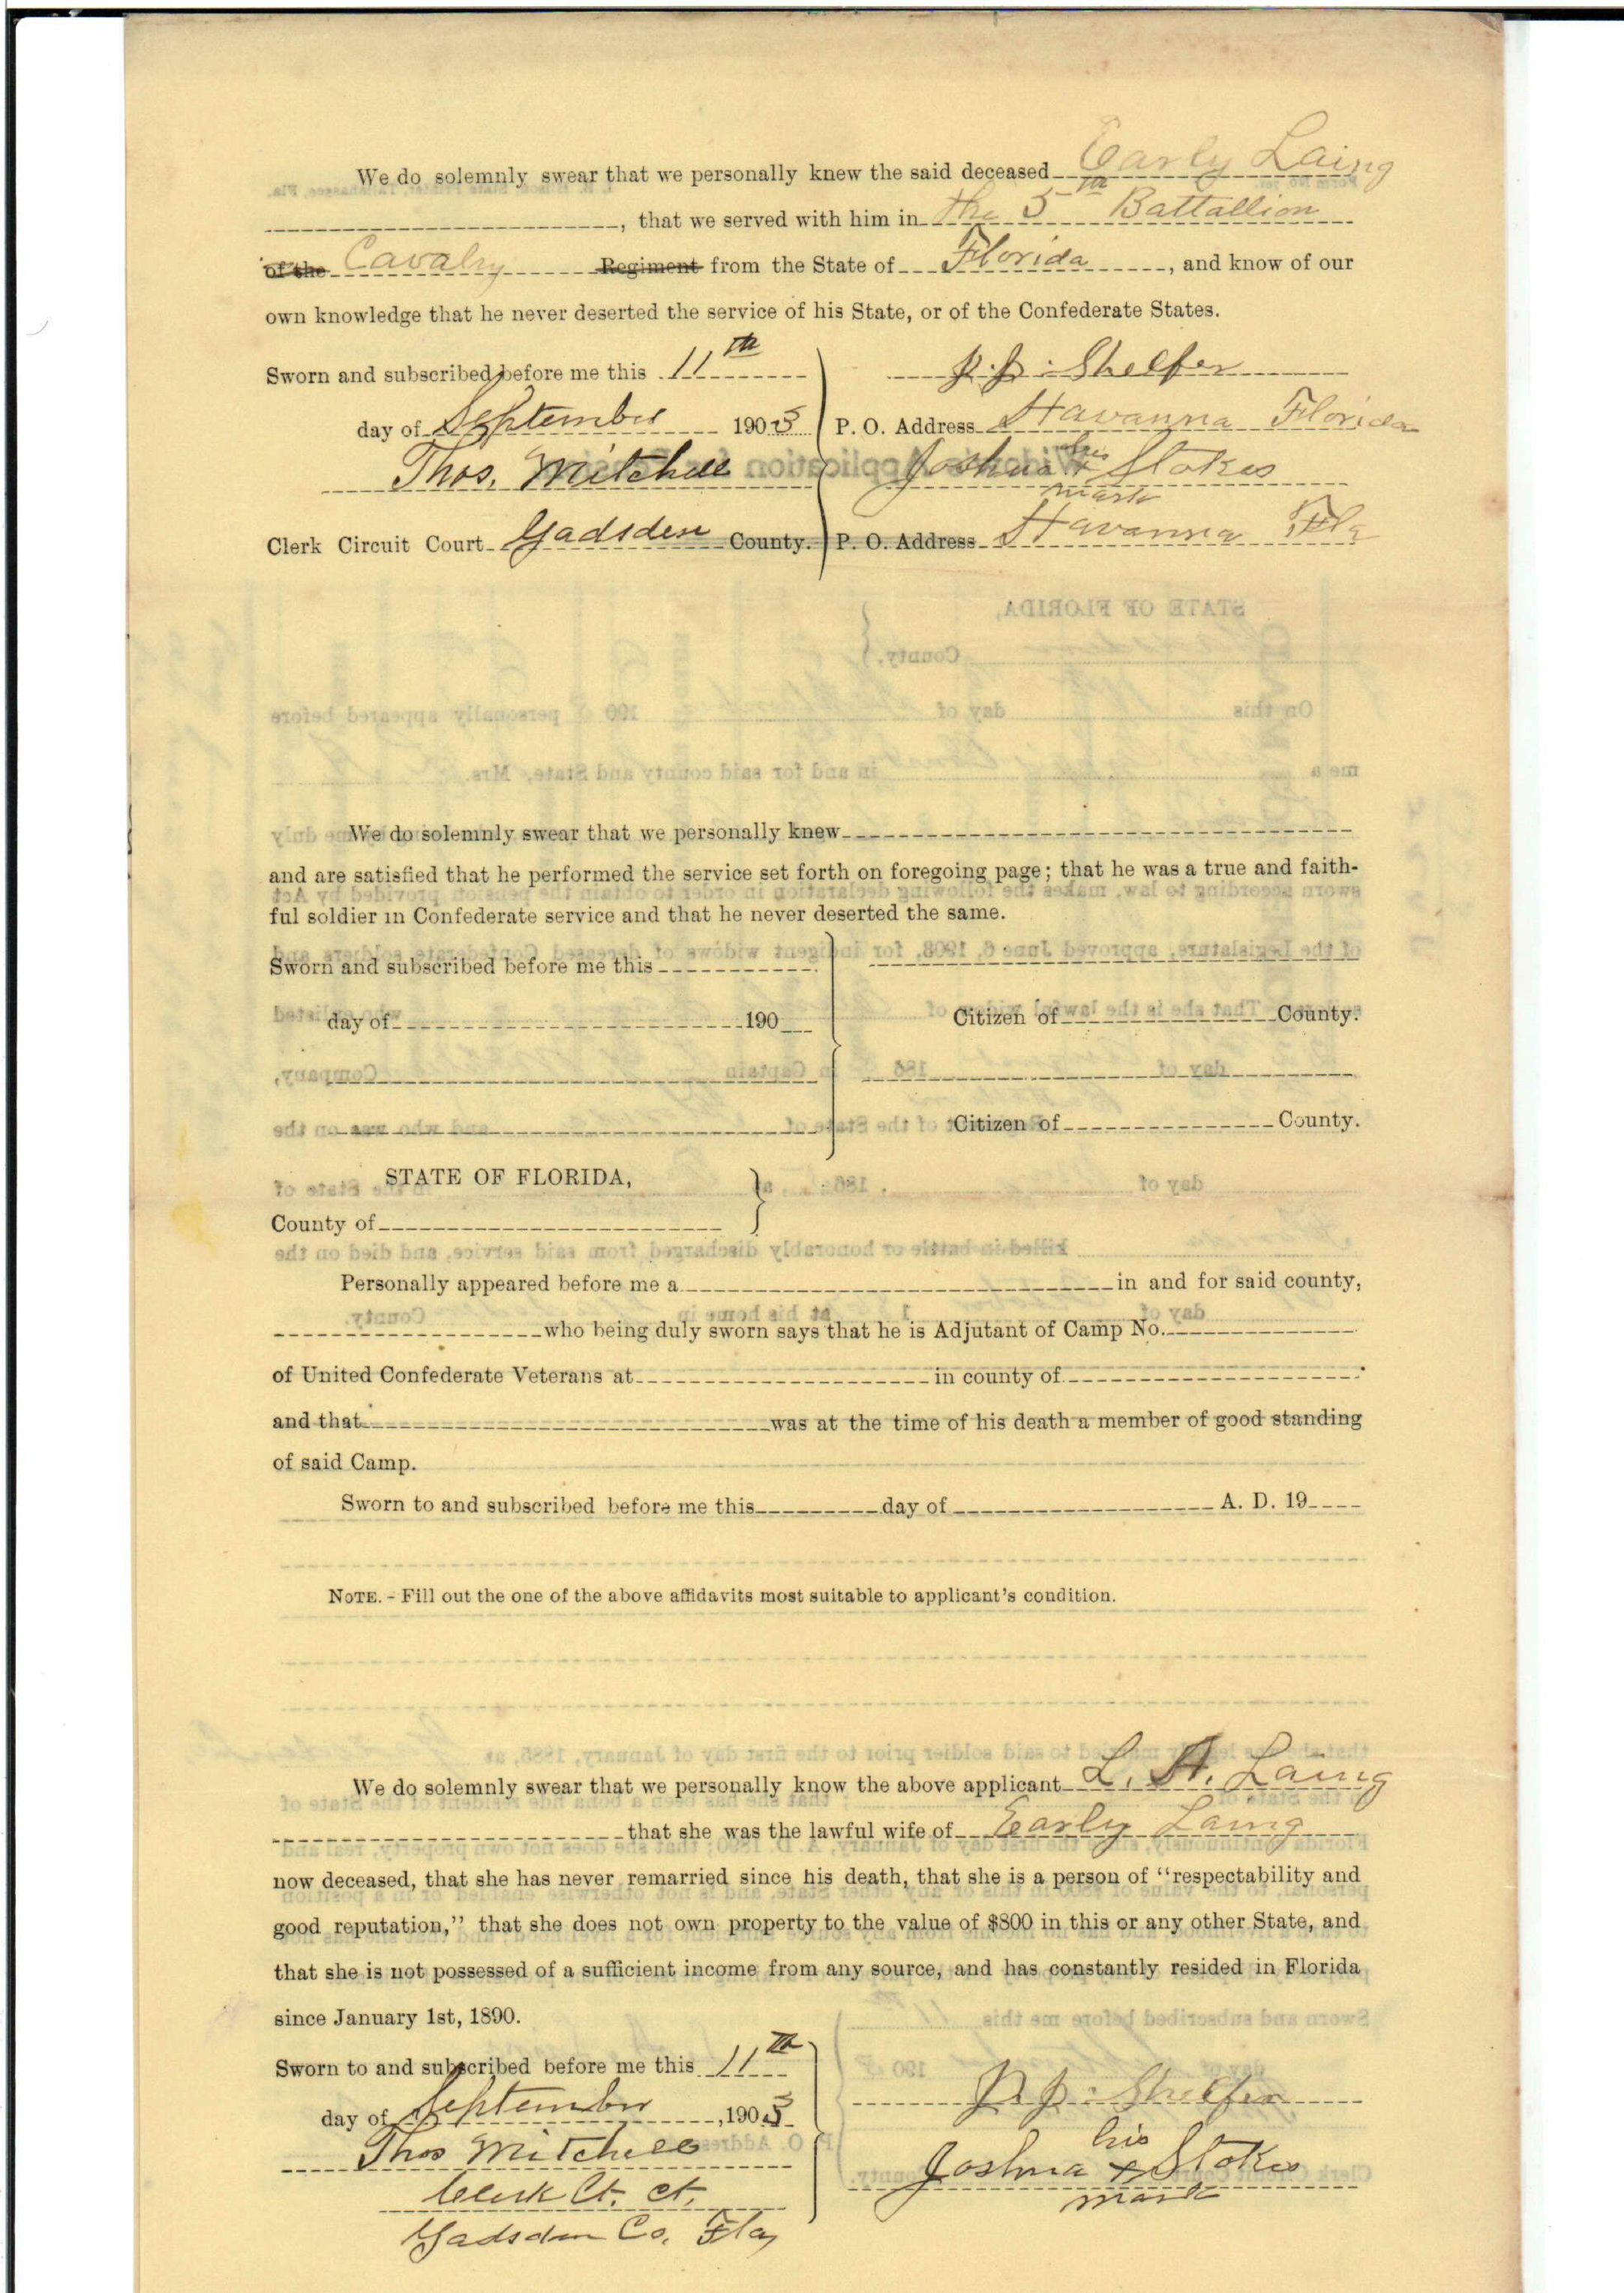 We do solemnly swear that we personally knew the said deceased Early Laing
, that we served with him in the 5th Battallion
of the Cavalry Regiment from the State of Florida, and know of our
own knowledge that he never deserted the service of his State, or of the Confederate States.
Sworn and subscribed before me this 11th
day of September 1903
Thos. Mitchell
Clerk Circuit Court Gadsden County.
Shelfer
P. O. Address Havanna Florida
Joshua his x mark Stokes
P. O. Address Havanna Fla
We do solemnly swear that we personally knew
and are satisfied that he performed the service set forth on foregoing page; that he was a true and faith-
ful soldier in Confederate service and that he never deserted the same.
Sworn and subscribed before me this
day of 190
Citizen of County.
Citizen of County.
STATE OF FLORIDA,
County of
Personally appeared before me a in and for said county,
who being duly sworn says that he is Adjutant of Camp No.
of United Confederate Veterans at in county of
and that was at the time of his death a member of good standing
of said Camp.
Sworn to and subscribed before me this day of A. D. 19
NOTE. - Fill out the one of the above affidavits most suitable to applicant's condition.
We do solemnly swear that we personally know the above applicant L. A. Laing
that she was the lawful wife of Early Laing
now deceased, that she has never remarried since his death, that she is a person of "respectability and
good reputation," that she does not own property to the value of $800 in this or any other State, and
that she is not possessed of a sufficient income from any source, and has constantly resided in Florida
since January 1st, 1890.
Sworn to and subscribed before me this 11th
day of September, 1903
Thos Mitchell
Clerk Ct. ct.
Gadsden Co. Fla
Shelfer
Joshua his x mark Stokes